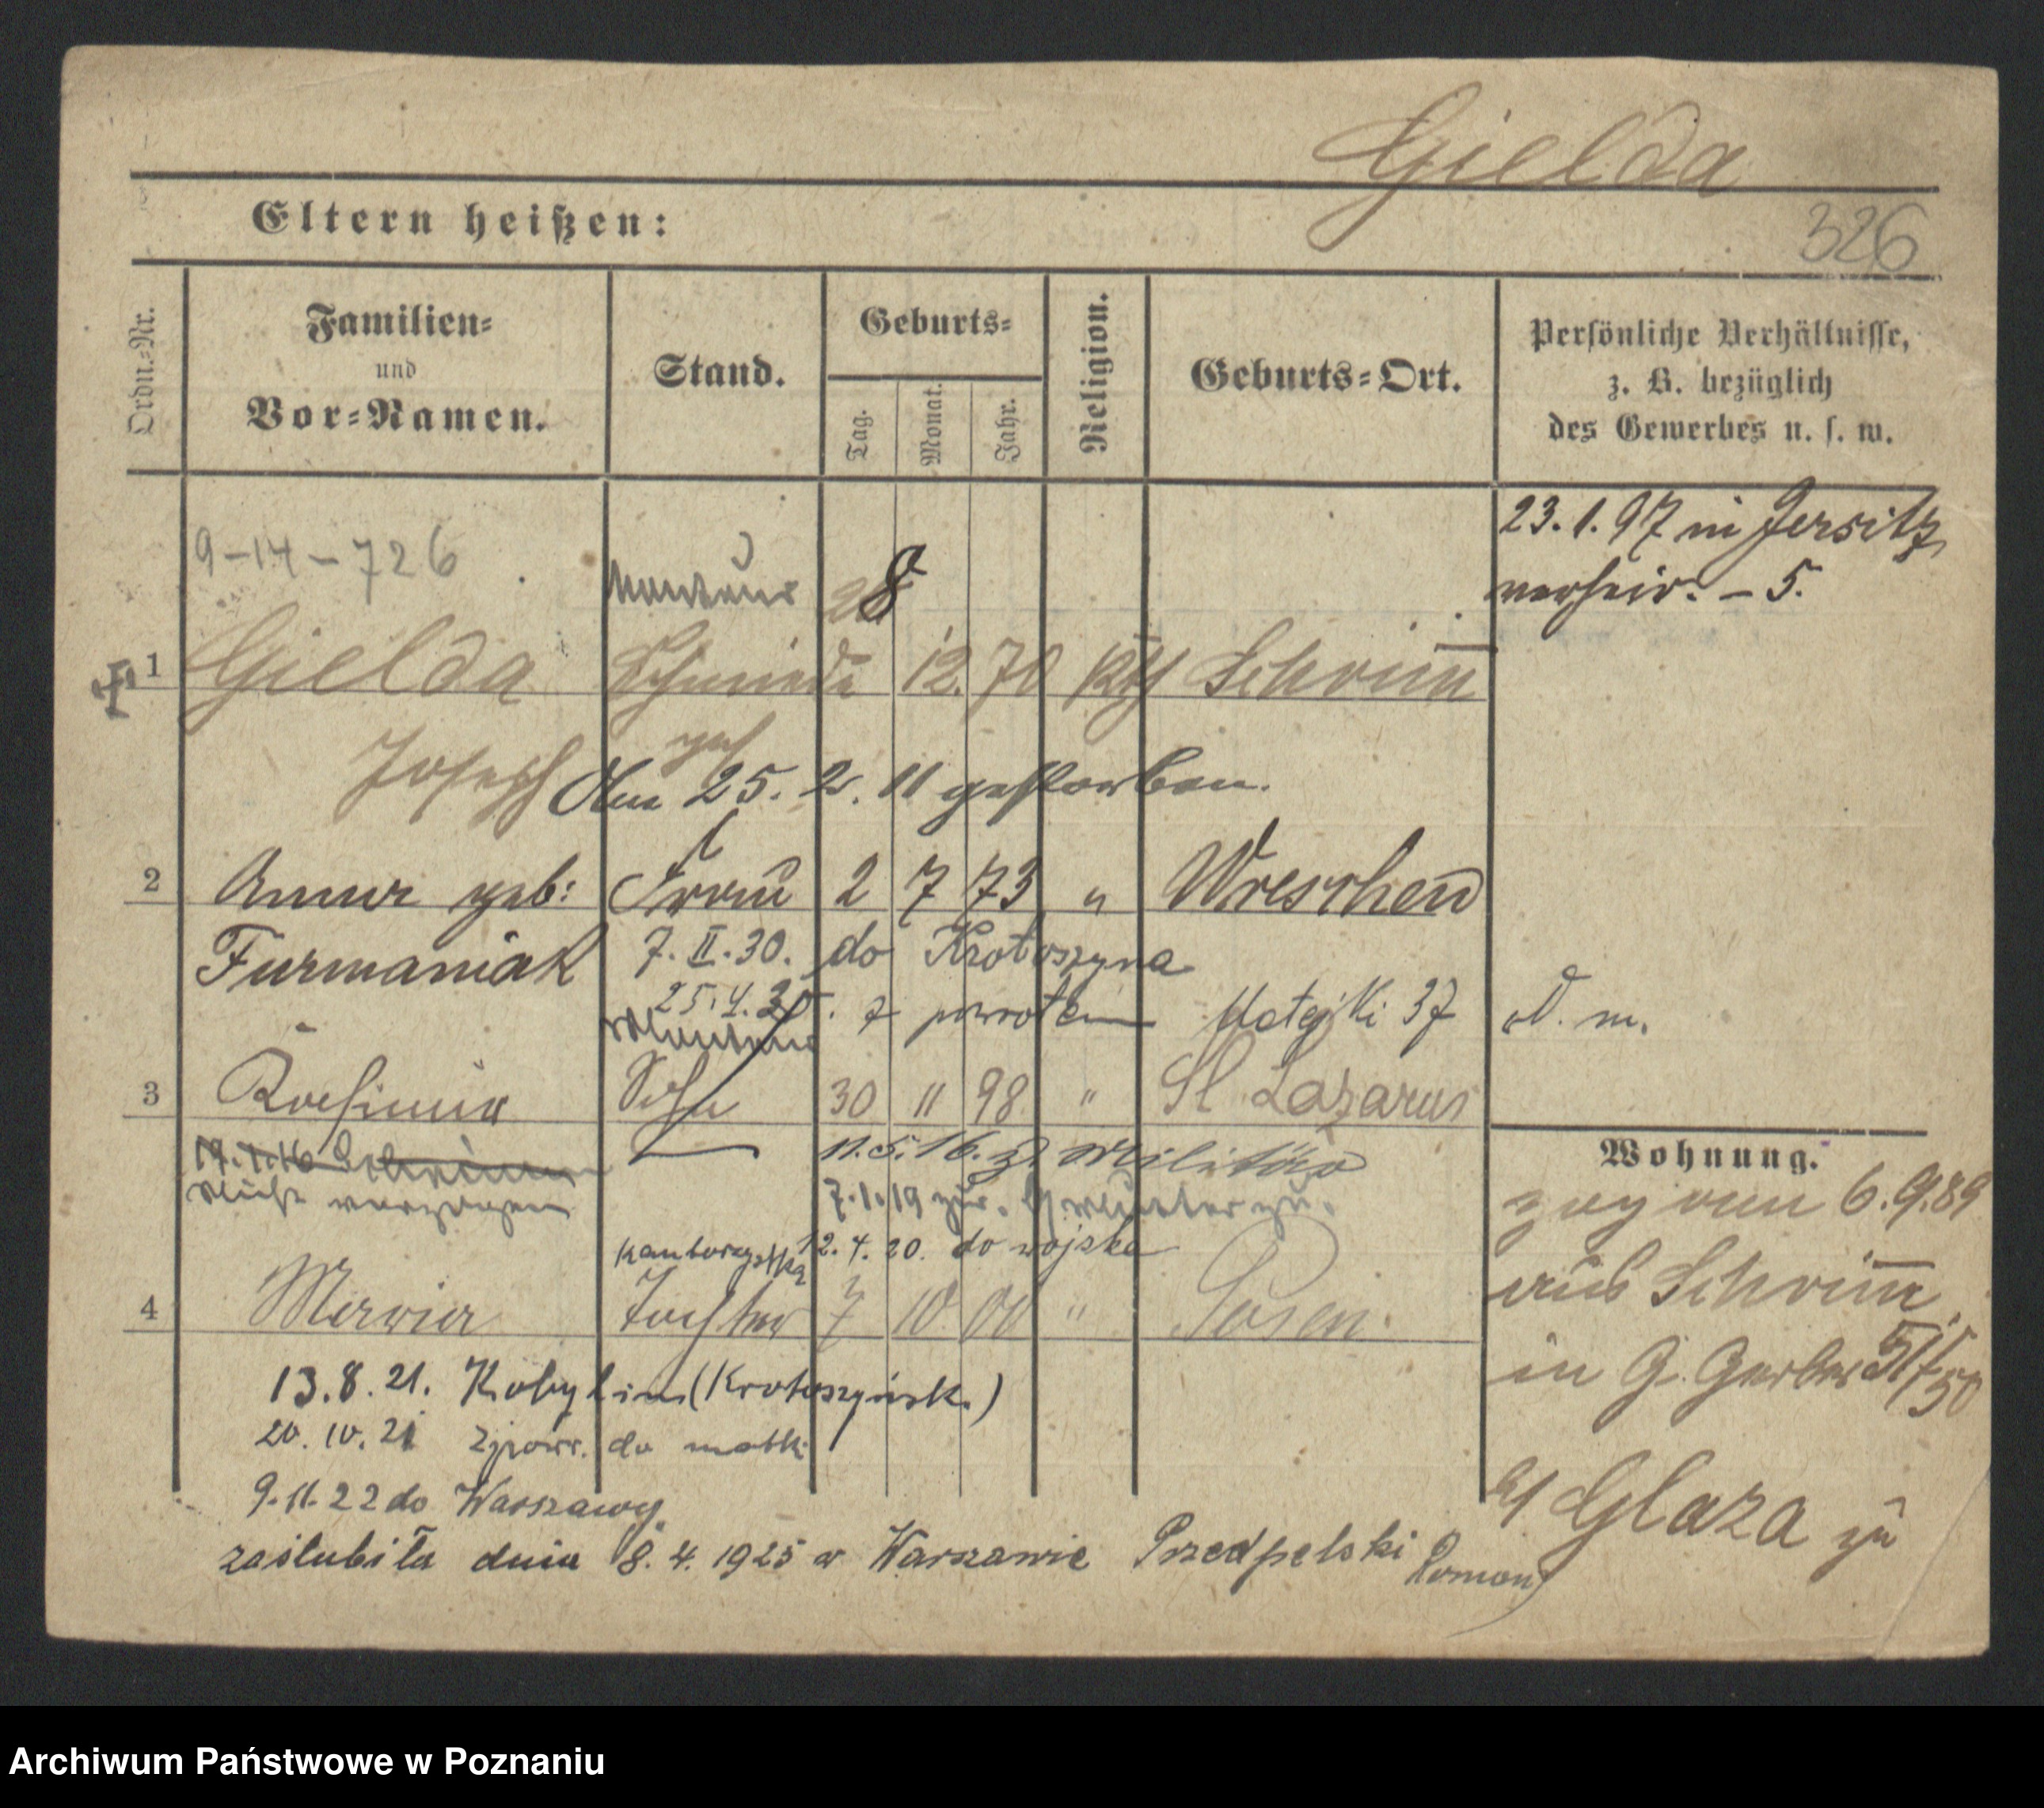 Gielda
326
Eltern heißen:
Ordn.-Nr.
Familien-
und
Vor-Namen.
Stand.
Geburts-
Tag.
Monat.
Jahr.
Religion.
Geburts-Ort.
Persönliche Verhältnisse,
z. B. bezüglich
des Gewerbes u. s. w.
23. 1. 97 in Jersitz
verheir. – 5.
9-14-726
Monteur
8
1 Gielda Schmiede 12. 70 kth Schrim̅
Joseph
Am 25. 2. 11 gestorben.
2 Anna geb: Frau 2 7 73 " Wreschen
Furmaniak 7. II. 30. do Krotoszyna
25. 4. 30. z powrotem Matejki 37 N. m.
Monteur
3 Kasimir Sohn 30 11 98 " St Lazarus
11. 5. 16. z. Militär
nicht verzogen
7. 1. 19 zur.
kantorzystka 12. 4. 20. do wojska
4 Maria Tochter 7 10 00 " Posen.
13. 8. 21. Kobylin (Krotoszyńsk.)
20. 10. 21 zpowr. do matki
9. 11. 22 do Warszawy
zaślubiła dnia 18. 4. 1925 w Warszawie Przedpelski Roman
Wohnung.
zog am 6. 9. 89
aus Schrim̅
in G. Gerber 51/50
b/ Glaza zu
Archiwum Państwowe w Poznaniu